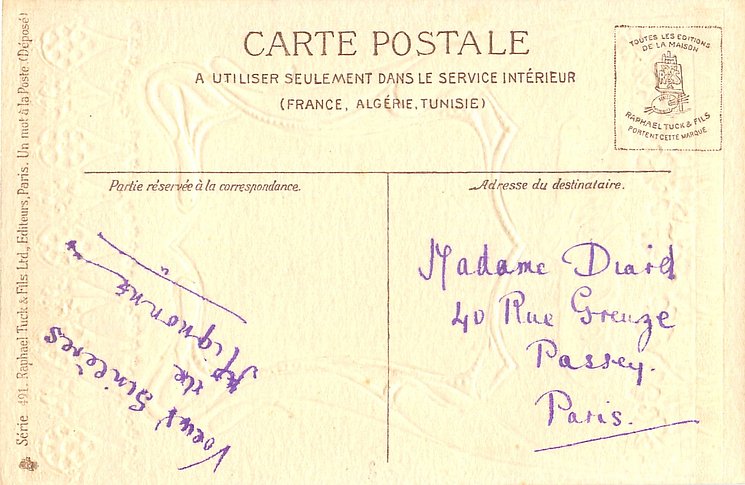 CARTE POSTALE
A UTILISER SEULEMENT DANS LE SERVICE INTÉRIEUR
(FRANCE, ALGÉRIE, TUNISIE)
TOUTES LES EDITIONS
DE LA MAISON
RAPHAEL TUCK & FILS
PORTENT CETTE MARQUE
Série 491. Raphael Tuck & Fils Ltd., Editeurs, Paris. Un mot à la Poste. (Déposé)
Partie réservée à la correspondance.
Voeux Sincères
de
Mignonne
Adresse du destinataire.
Madame Diard
40 Rue Greuze
Passey.
Paris.